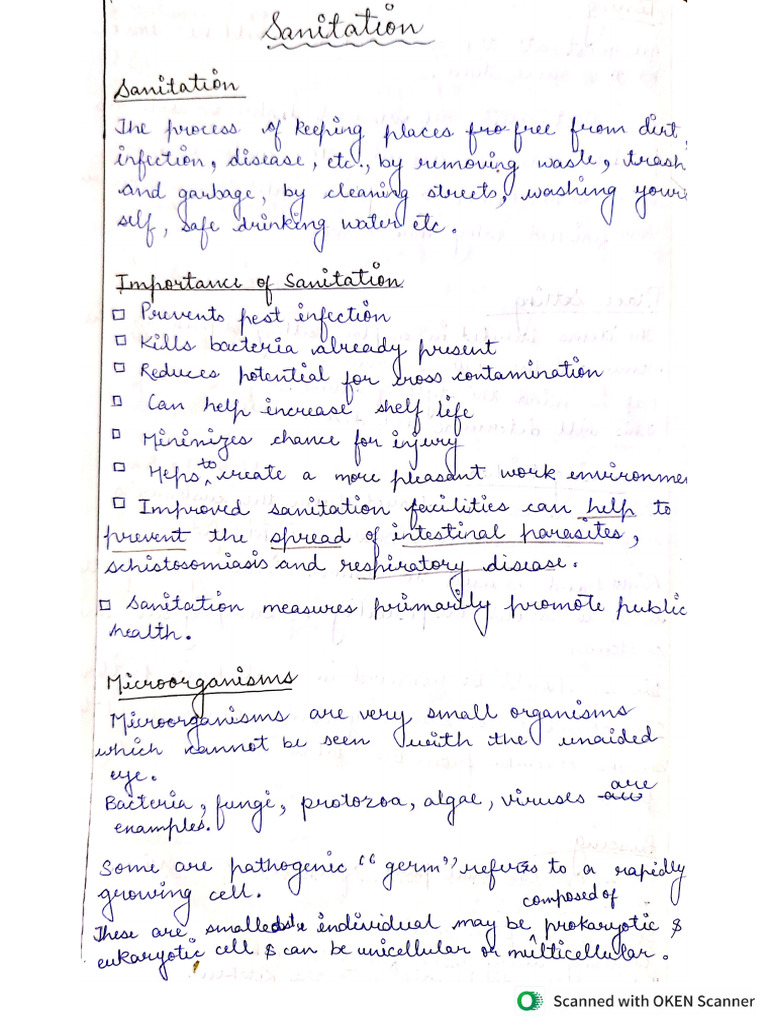 Sanitation
Sanitation
The process of keeping places fro free from dirt,
infection, disease, etc., by removing waste, trash
and garbage, by cleaning streets, washing your
self, safe drinking water etc.
Importance of Sanitation
□ Prevents pest infection
□ Kills bacteria already present
□ Reduces potential for cross contamination
□ Can help increase shelf life
□ Minimizes chance for injury
□ Heps to create a more pleasant work environmen
□ Improved sanitation facilities can help to
prevent the spread of intestinal parasites,
schistosomiasis and respiratory disease.
□ Sanitation measures primarily promote public
health.
Microorganisms
Microorganisms are very small organisms
which cannot be seen with the unaided
eye.
Bacteria, fungi, protozoa, algae, viruses are
examples.
Some are pathogenic "germ" refers to a rapidly
growing cell.
These are individual may be composed of prokaryotic &
eukaryotic cell & can be unicellular or multicellular.
Scanned with OKEN Scanner